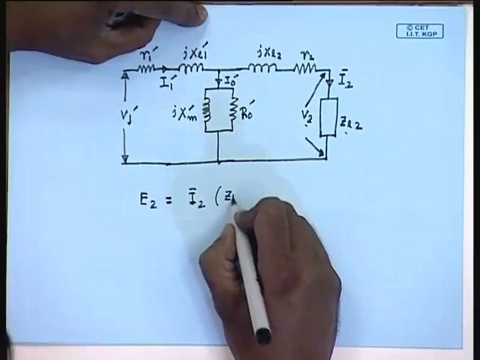 © CET
I.I.T. KGP
r₁' jXₑ₁' jxₑ₂ r₂
I₁' I₀' Ī₂
V₁' jX'ₘ R₀' V₂ Zₑ₂
E₂ = Ī₂ (Z